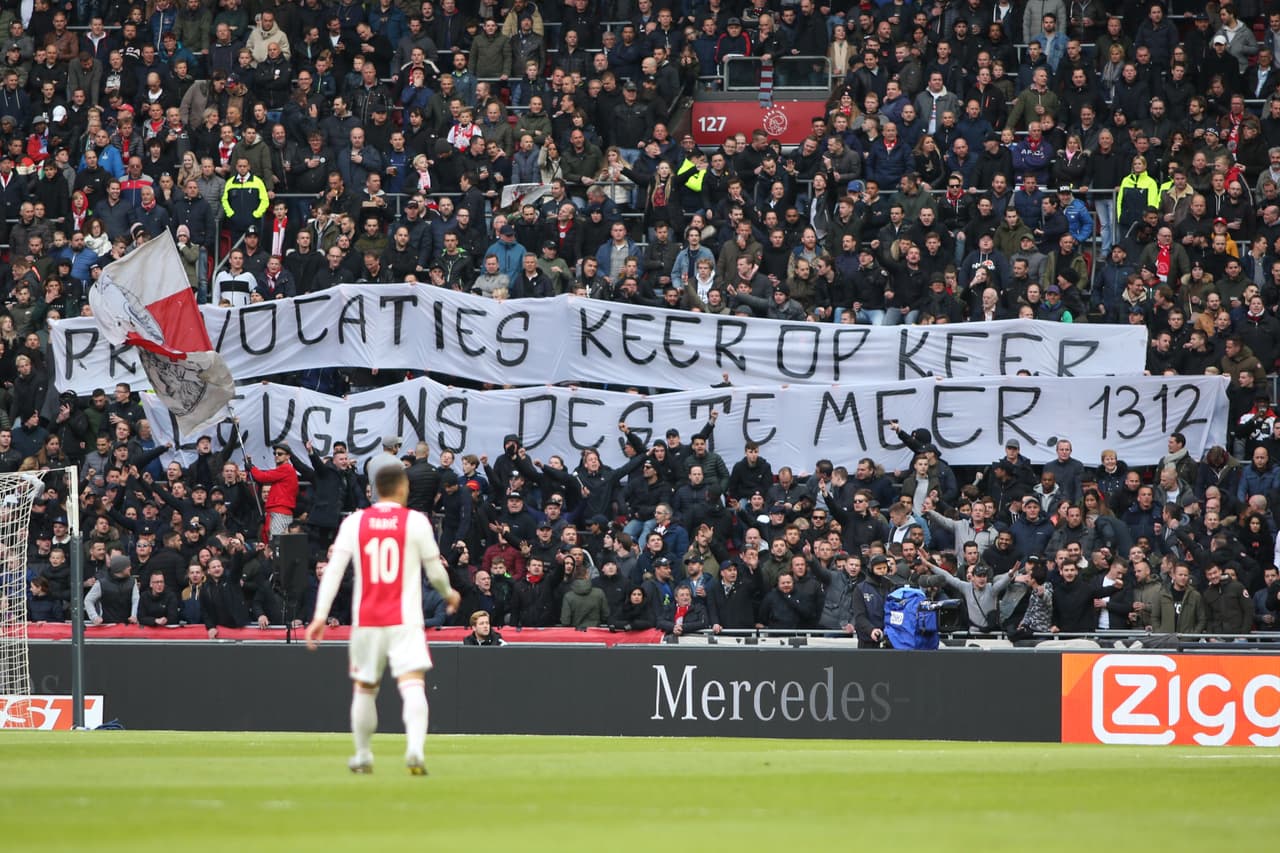 127
PROVOCATIES KEER OP KEER.
LEUGENS DES TE MEER. 1312
TADIĆ
10
Mercedes-B
ST
Zigg